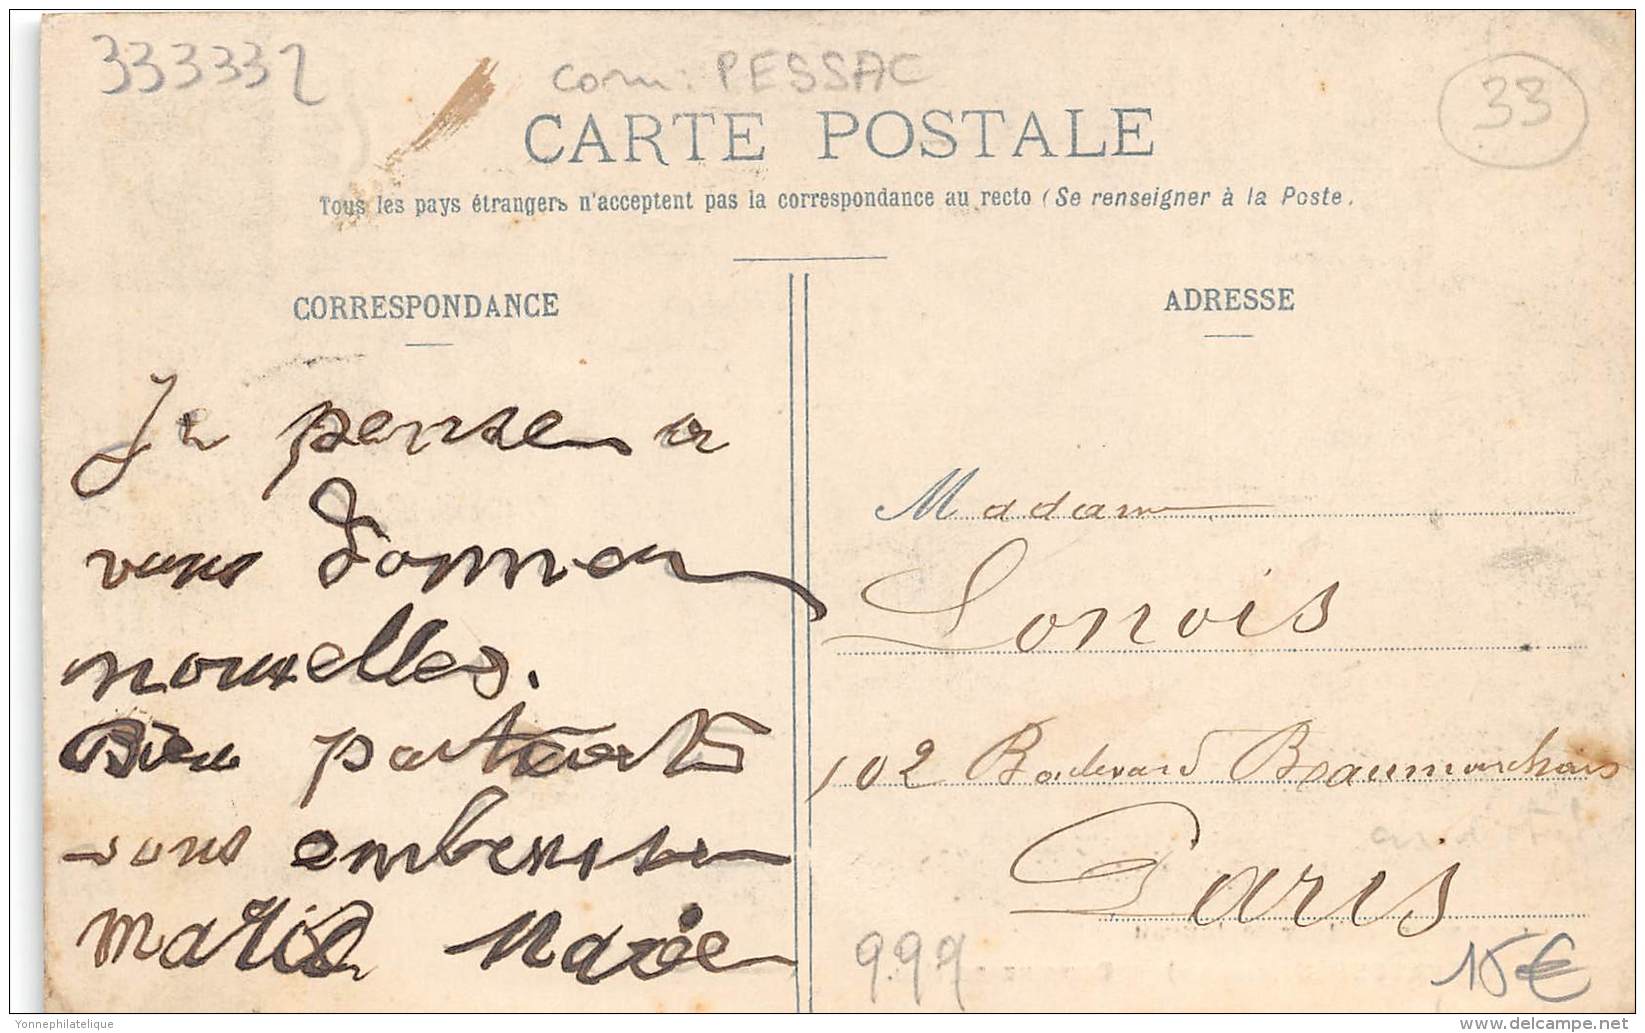 333332
com: PESSAC
33
CARTE POSTALE
Tous les pays étrangers n'acceptent pas la correspondance au recto (Se renseigner à la Poste.
CORRESPONDANCE
Je pense a
vous donner
nouvelles.
Bien
vous
Marie
ADRESSE
Madame
Lonois
102 Boulevard Beaumarchais
Paris
999
15€
Yonnephilatelique
delcampe.net